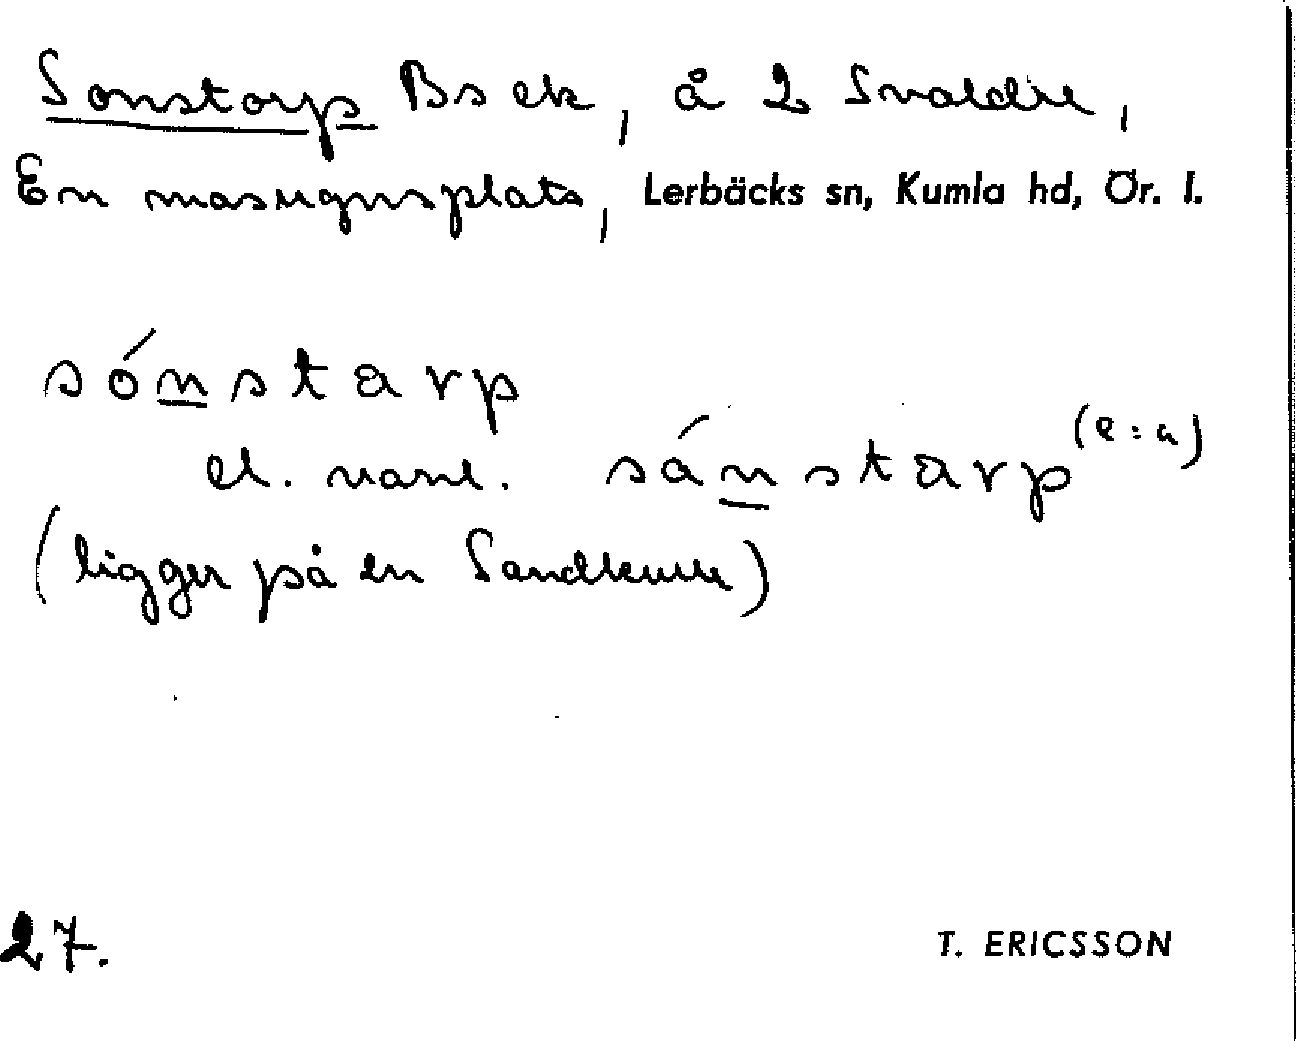 Sonstorp Bs ek, å 2 Svaldre,
En masugnsplats, Lerbäcks sn, Kumla hd, Ör. l.
sónstarp
el. vanl. sánstarp (e:a)
(ligger på en Sandkulle)
27.
T. ERICSSON